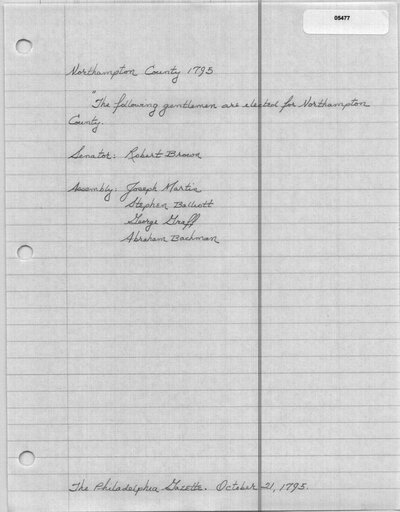 05477
Northampton County 1795
"The following gentlemen are elected for Northampton
County.
Senator: Robert Brown
Assembly: Joseph Martin
Stephen Balliott
George Graff
Abraham Bachman
The Philadelphia Gazette. October 21, 1795.